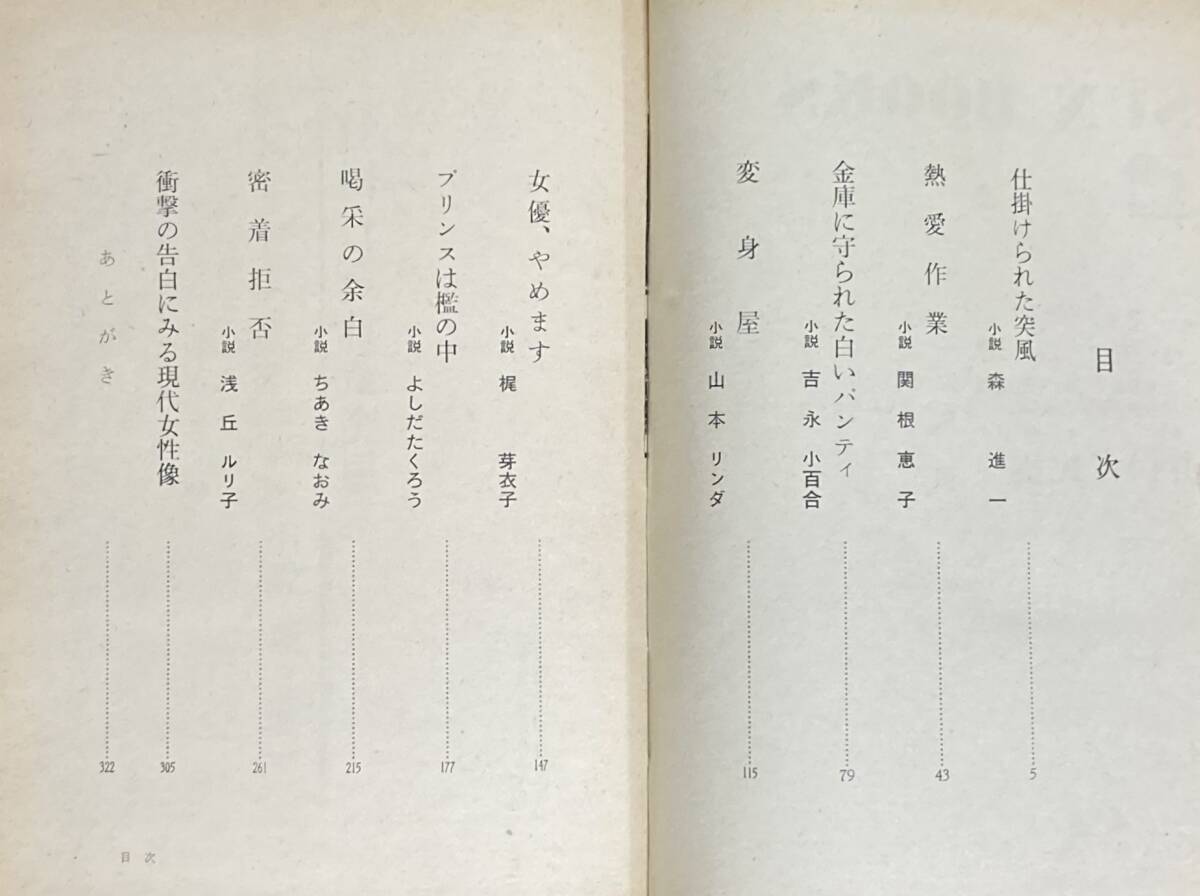 目次
仕掛けられた突風
小説 森 進一
5
熱愛作業
小説 関根恵子
43
金庫に守られた白いパンティ
小説 吉永小百合
79
変身屋
小説 山本リンダ
115
女優、やめます
小説 梶 芽衣子
147
プリンスは檻の中
小説 よしだたくろう
177
喝采の余白
小説 ちあき なおみ
215
密着拒否
小説 浅丘 ルリ子
261
衝撃の告白にみる現代女性像
305
あとがき
322
目次